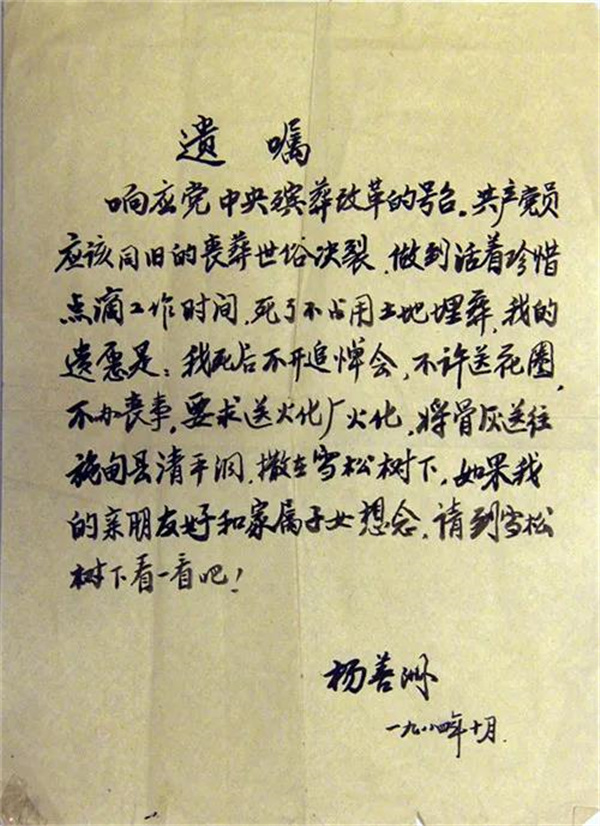 遗嘱
响应党中央殡葬改革的号召。共产党员
应该同旧的丧葬世俗决裂,做到活着珍惜
点滴工作时间,死了不占用土地埋葬,我的
遗愿是:我死后不开追悼会,不许送花圈,
不办丧事,要求送火化厂火化,将骨灰送往
施甸县清平洞,撒在雪松树下,如果我
的亲朋友好和家属子女想念,请到雪松
树下看一看吧!
杨善洲
一九八四年十月.